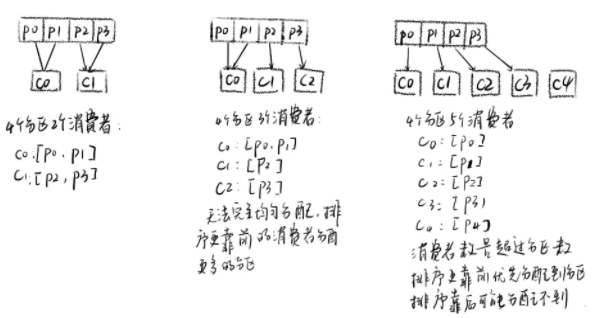 p0 p1 p2 p3
C0 C1
4个分区2个消费者:
C0:[p0,p1]
C1:[p2,p3]
p0 p1 p2 p3
C0 C1 C2
4个分区3个消费者:
C0:[p0,p1]
C1:[P2]
C2:[P3]
无法完全均匀分配,排
序更靠前的消费者分配
更多的分区
p0 p1 p2 p3
C0 C1 C2 C3 C4
4个分区5个消费者
C0:[p0]
C1:[p1]
C2:[P2]
C3:[P3)
C4:[P4]
消费者数量超过分区数
排序更靠前优先分配到分区
排序靠后可能分配不到